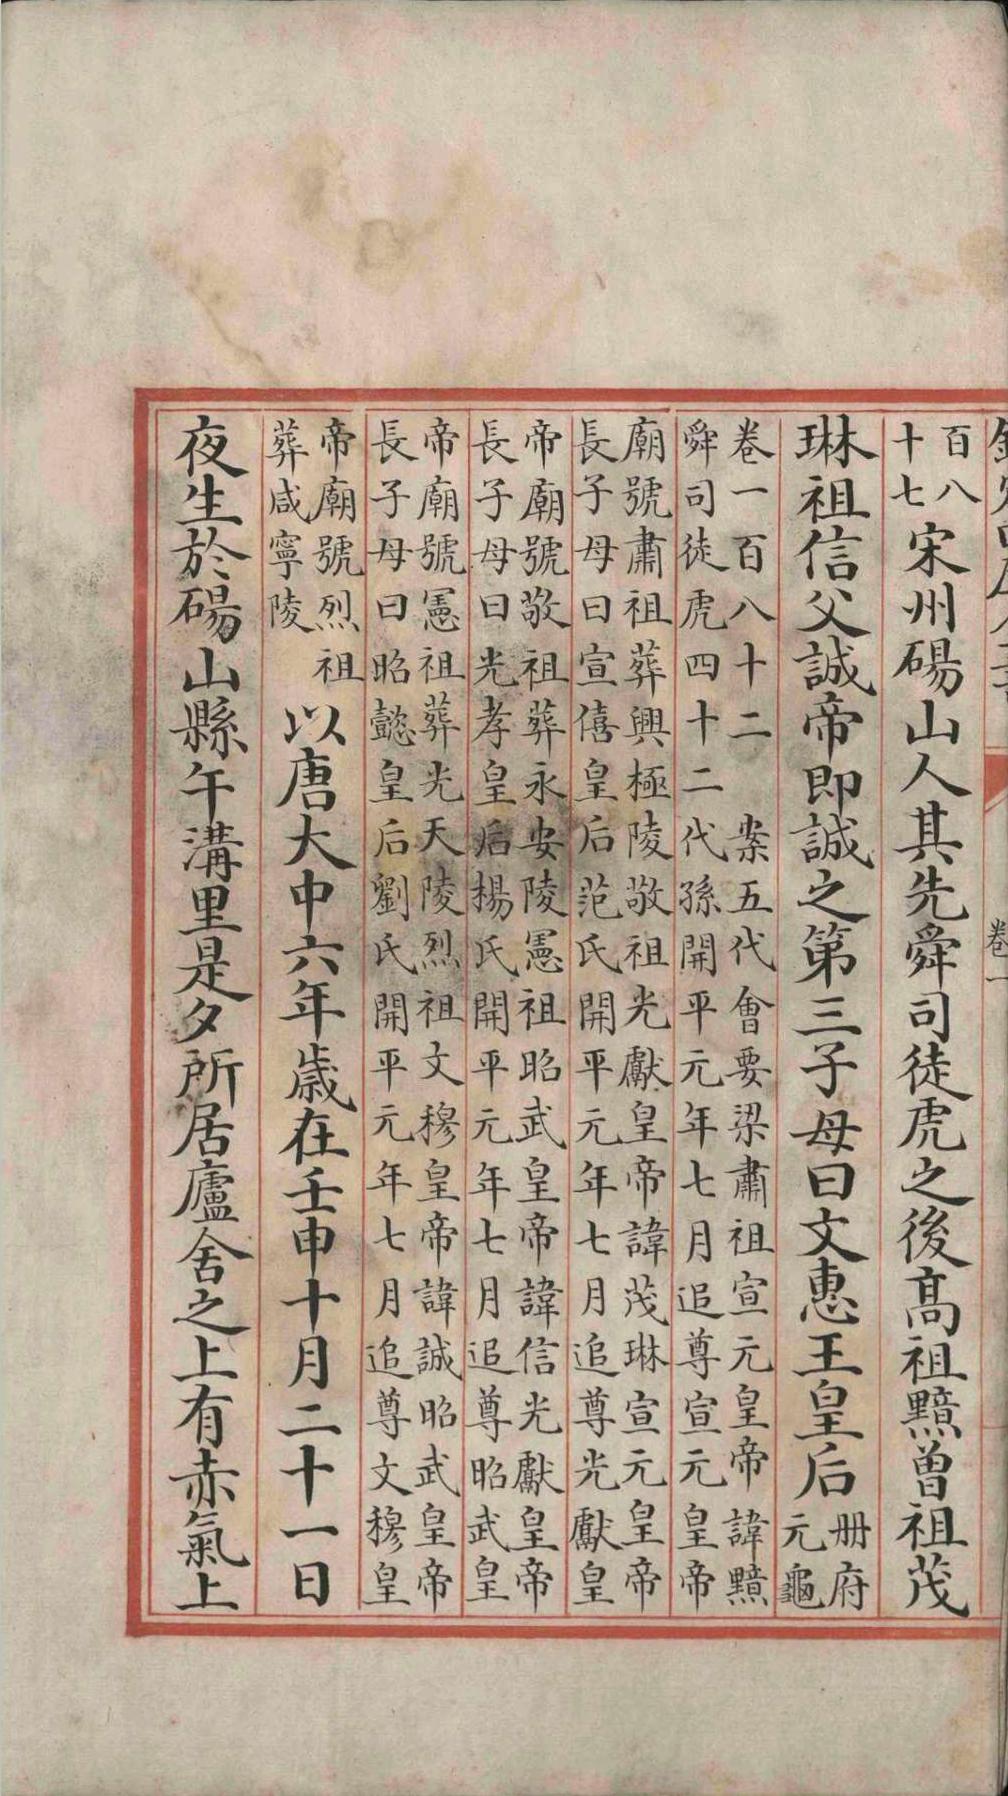 百八
十七
宋州碭山人其先舜司徒虎之後髙祖黯曾祖茂
琳祖信父誠帝即誠之第三子母曰文惠王皇后
册府
元龜
卷一百八十二 案五代會要梁肅祖宣元皇帝諱黯
舜司徒虎四十二代孫開平元年七月追尊宣元皇帝
廟號肅祖葬興極陵敬祖光獻皇帝諱茂琳宣元皇帝
長子母曰宣僖皇后范氏開平元年七月追尊光獻皇
帝廟號敬祖葬永安陵憲祖昭武皇帝諱信光獻皇帝
長子母曰光孝皇后楊氏開平元年七月追尊昭武皇
帝廟號憲祖葬光天陵烈祖文穆皇帝諱誠昭武皇帝
長子母曰昭懿皇后劉氏開平元年七月追尊文穆皇
帝廟號烈祖
葬咸寧陵
以唐大中六年歲在壬申十月二十一日
夜生於碭山縣午溝里是夕所居廬舍之上有赤氣上
卷一